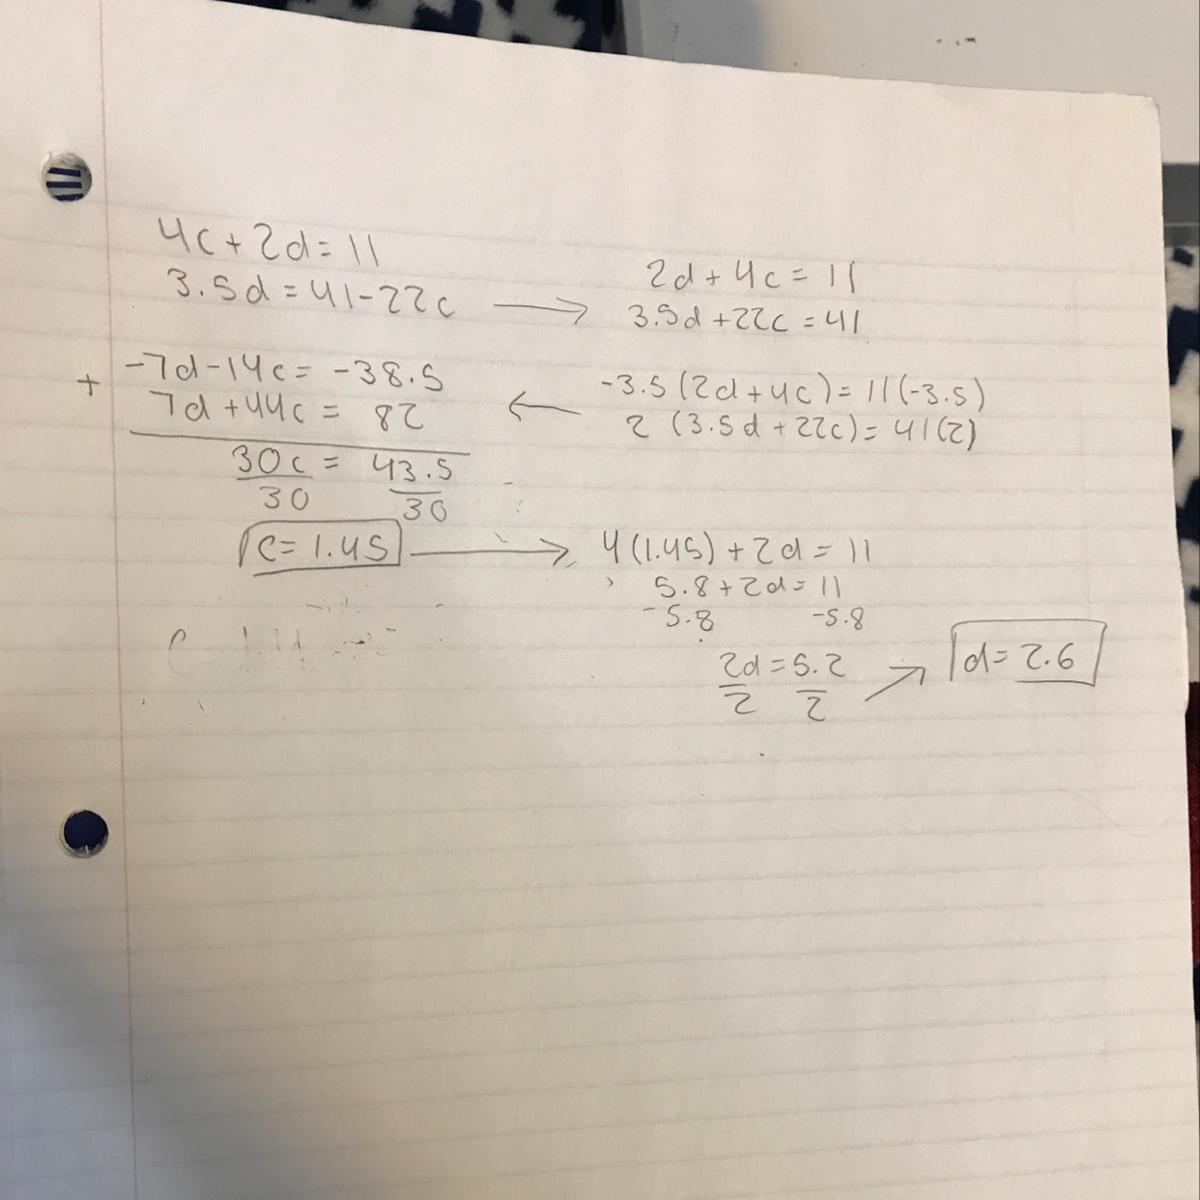 4c + 2d = 11
3.5d = 41 - 22c →
2d + 4c = 11
3.5d + 22c = 41
-3.5(2d + 4c) = 11(-3.5)
2 (3.5d + 22c) = 41(2)
←
+ -7d - 14c = -38.5
7d + 44c = 82
30c = 43.5
30 30
c = 1.45 →
4(1.45) + 2d = 11
5.8 + 2d = 11
-5.8 -5.8
2d = 5.2
2 2
→ d = 2.6